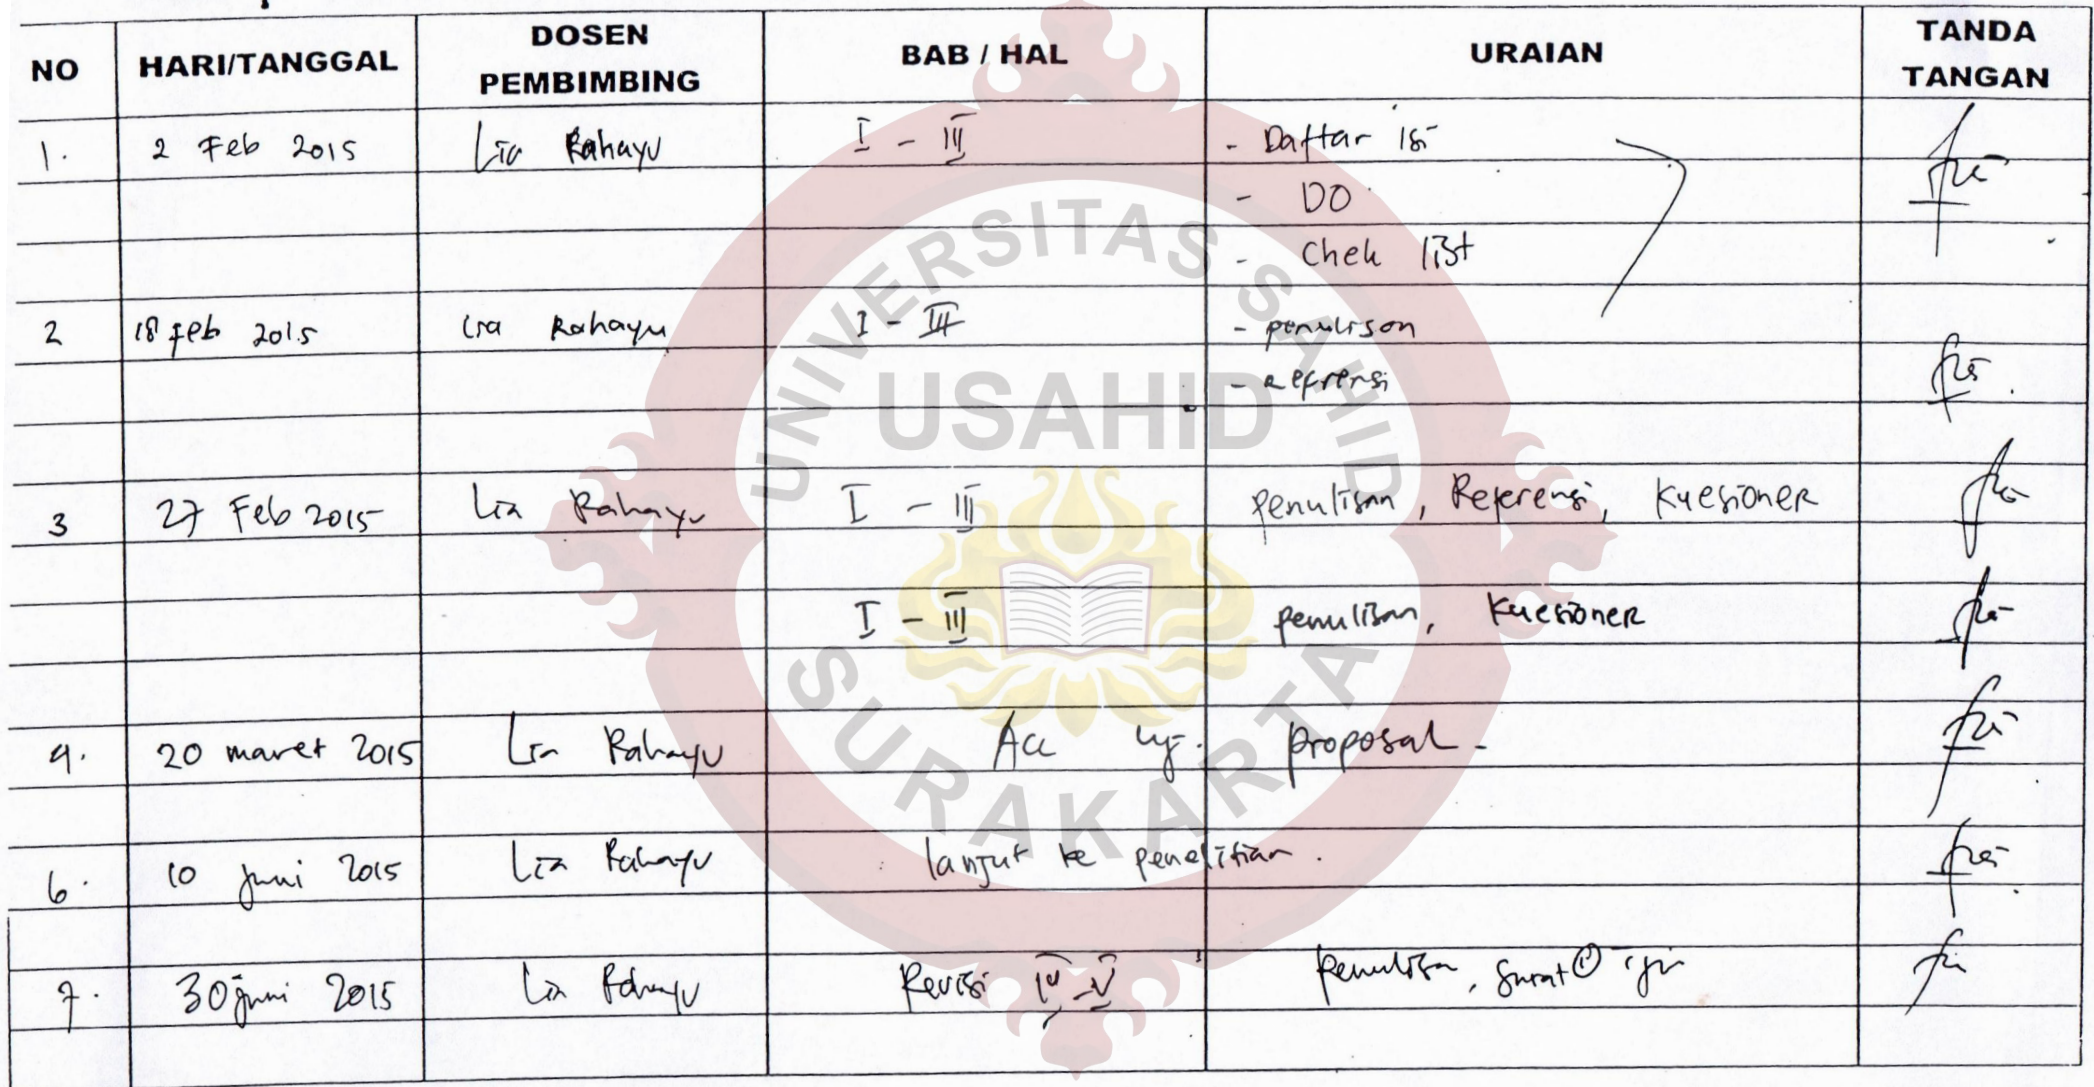 NO HARI/TANGGAL DOSEN PEMBIMBING BAB / HAL URAIAN TANDA TANGAN
1. 2 Feb 2015 Lia Rahayu I - III - Daftar isi
- DO
- Chek list
2 18 feb 2015 Lia Rahayu I - III - penulisan
- Refrensi
3 27 Feb 2015 Lia Rahayu I - III penulisan, Referensi, Kuesioner
I - III penulisan, Kuesioner
4. 20 maret 2015 Lia Rahayu Acc uj. proposal -
6. 10 juni 2015 Lia Rahayu lanjut ke penelitian.
7. 30 juni 2015 Lia Rahayu Revisi IV - V penulisan, surat
UNIVERSITAS SAHID
USAHID
SURAKARTA